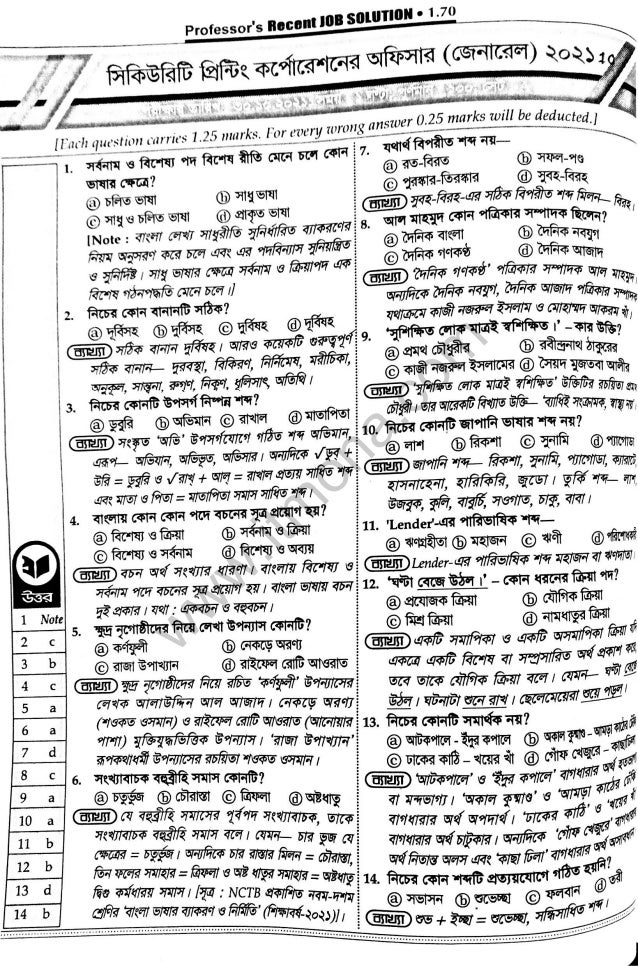 Professor's Recent JOB SOLUTION • 1.70
সিকিউরিটি প্রিন্টিং কর্পোরেশনের অফিসার (জেনারেল) ২০২১
[Each question carries 1.25 marks. For every wrong answer 0.25 marks will be deducted.]
1. সর্বনাম ও বিশেষ্য পদ বিশেষ রীতি মেনে চলে কোন
ভাষার ক্ষেত্রে?
ⓐ চলিত ভাষা ⓑ সাধু ভাষা
ⓒ সাধু ও চলিত ভাষা ⓓ প্রাকৃত ভাষা
[Note : বাংলা লেখ্য সাধুরীতি সুনির্ধারিত ব্যাকরণের
নিয়ম অনুসরণ করে চলে এবং এর পদবিন্যাস সুনিয়ন্ত্রিত
ও সুনির্দিষ্ট। সাধু ভাষার ক্ষেত্রে সর্বনাম ও ক্রিয়াপদ এক
বিশেষ গঠনপদ্ধতি মেনে চলে।]
2. নিচের কোন বানানটি সঠিক?
ⓐ দূর্বিসহ ⓑ দুর্বিসহ ⓒ দুর্বিষহ ⓓ দূর্বিষহ
ব্যাখ্যা সঠিক বানান দুর্বিষহ। আরও কয়েকটি গুরুত্বপূর্ণ
সঠিক বানান— দুরবস্থা, বিকিরণ, নির্নিমেষ, মরীচিকা,
অনুকূল, সান্ত্বনা, রুগ্‌ণ, নিক্বণ, ধূলিসাৎ, অতিথি।
3. নিচের কোনটি উপসর্গ নিষ্পন্ন শব্দ?
ⓐ ডুবুরি ⓑ অভিমান ⓒ রাখাল ⓓ মাতাপিতা
ব্যাখ্যা সংস্কৃত 'অভি' উপসর্গযোগে গঠিত শব্দ অভিমান,
এরূপ— অভিযান, অভিভূত, অভিসার। অন্যদিকে √ডুব্ +
উরি = ডুবুরি ও √রাখ্ + আল্ = রাখাল প্রত্যয় সাধিত শব্দ
এবং মাতা ও পিতা = মাতাপিতা সমাস সাধিত শব্দ।
4. বাংলায় কোন কোন পদে বচনের সূত্র প্রয়োগ হয়?
ⓐ বিশেষ্য ও ক্রিয়া ⓑ সর্বনাম ও ক্রিয়া
ⓒ বিশেষ্য ও সর্বনাম ⓓ বিশেষ্য ও অব্যয়
ব্যাখ্যা বচন অর্থ সংখ্যার ধারণা। বাংলায় বিশেষ্য ও
সর্বনাম পদে বচনের সূত্র প্রয়োগ হয়। বাংলা ভাষায় বচন
দুই প্রকার। যথা : একবচন ও বহুবচন।
5. ক্ষুদ্র নৃগোষ্ঠীদের নিয়ে লেখা উপন্যাস কোনটি?
ⓐ কর্ণফুলী ⓑ নেকড়ে অরণ্য
ⓒ রাজা উপাখ্যান ⓓ রাইফেল রোটি আওরাত
ব্যাখ্যা ক্ষুদ্র নৃগোষ্ঠীদের নিয়ে রচিত 'কর্ণফুলী' উপন্যাসের
লেখক আলাউদ্দিন আল আজাদ। নেকড়ে অরণ্য
(শওকত ওসমান) ও রাইফেল রোটি আওরাত (আনোয়ার
পাশা) মুক্তিযুদ্ধভিত্তিক উপন্যাস। 'রাজা উপাখ্যান'
রূপকথাধর্মী উপন্যাসের রচয়িতা শওকত ওসমান।
6. সংখ্যাবাচক বহুব্রীহি সমাস কোনটি?
ⓐ চতুর্ভুজ ⓑ চৌরাস্তা ⓒ ত্রিফলা ⓓ অষ্টধাতু
ব্যাখ্যা যে বহুব্রীহি সমাসের পূর্বপদ সংখ্যাবাচক, তাকে
সংখ্যাবাচক বহুব্রীহি সমাস বলে। যেমন— চার ভুজ যে
ক্ষেত্রের = চতুর্ভুজ। অন্যদিকে চার রাস্তার মিলন = চৌরাস্তা,
তিন ফলের সমাহার = ত্রিফলা ও অষ্ট ধাতুর সমাহার = অষ্টধাতু
দ্বিগু কর্মধারয় সমাস। [সূত্র : NCTB প্রকাশিত নবম-দশম
শ্রেণির 'বাংলা ভাষার ব্যাকরণ ও নির্মিতি' (শিক্ষাবর্ষ-২০২১)]।
7. যথার্থ বিপরীত শব্দ নয়—
ⓐ রত-বিরত ⓑ সফল-পণ্ড
ⓒ পুরস্কার-তিরস্কার ⓓ সুবহ-বিরহ
ব্যাখ্যা সুবহ-বিরহ-এর সঠিক বিপরীত শব্দ মিলন— বিরহ।
8. আল মাহমুদ কোন পত্রিকার সম্পাদক ছিলেন?
ⓐ দৈনিক বাংলা ⓑ দৈনিক নবযুগ
ⓒ দৈনিক গণকণ্ঠ ⓓ দৈনিক আজাদ
ব্যাখ্যা 'দৈনিক গণকণ্ঠ' পত্রিকার সম্পাদক আল মাহমুদ।
অন্যদিকে দৈনিক নবযুগ, দৈনিক আজাদ পত্রিকার সম্পাদক
যথাক্রমে কাজী নজরুল ইসলাম ও মোহাম্মদ আকরম খাঁ।
9. 'সুশিক্ষিত লোক মাত্রই স্বশিক্ষিত।' – কার উক্তি?
ⓐ প্রমথ চৌধুরীর ⓑ রবীন্দ্রনাথ ঠাকুরের
ⓒ কাজী নজরুল ইসলামের ⓓ সৈয়দ মুজতবা আলীর
ব্যাখ্যা 'সুশিক্ষিত লোক মাত্রই স্বশিক্ষিত' উক্তিটির রচয়িতা প্রমথ
চৌধুরী। তার আরেকটি বিখ্যাত উক্তি— 'ব্যাধিই সংক্রামক, স্বাস্থ্য নয়'।
10. নিচের কোনটি জাপানি ভাষার শব্দ নয়?
ⓐ লাশ ⓑ রিকশা ⓒ সুনামি ⓓ প্যাগোডা
ব্যাখ্যা জাপানি শব্দ— রিকশা, সুনামি, প্যাগোডা, ক্যারাটে,
হাসনাহেনা, হারিকিরি, জুডো। তুর্কি শব্দ— লাশ,
উজবুক, কুলি, বাবুর্চি, সওগাত, চাকু, বাবা।
11. 'Lender'-এর পারিভাষিক শব্দ—
ⓐ ঋণগ্রহীতা ⓑ মহাজন ⓒ ঋণী ⓓ পরিশোধকারী
ব্যাখ্যা Lender-এর পারিভাষিক শব্দ মহাজন বা ঋণদাতা।
12. 'ঘণ্টা বেজে উঠল।' – কোন ধরনের ক্রিয়া পদ?
ⓐ প্রযোজক ক্রিয়া ⓑ যৌগিক ক্রিয়া
ⓒ মিশ্র ক্রিয়া ⓓ নামধাতুর ক্রিয়া
ব্যাখ্যা একটি সমাপিকা ও একটি অসমাপিকা ক্রিয়া যদি
একত্রে একটি বিশেষ বা সম্প্রসারিত অর্থ প্রকাশ করে,
তবে তাকে যৌগিক ক্রিয়া বলে। যেমন— ঘণ্টা বেজে
উঠল। ঘটনাটা শুনে রাখ। ছেলেমেয়েরা শুয়ে পড়ল।
13. নিচের কোনটি সমার্থক নয়?
ⓐ আটকপালে - ইঁদুর কপালে ⓑ অকাল কুষ্মাণ্ড - আমড়া কাঠের ঢেঁকি
ⓒ ঢাকের কাঠি - খয়ের খাঁ ⓓ গোঁফ খেজুরে - কাছাঢিলা
ব্যাখ্যা 'আটকপালে' ও 'ইঁদুর কপালে' বাগধারার অর্থ হতভাগ্য
বা মন্দভাগ্য। 'অকাল কুষ্মাণ্ড' ও 'আমড়া কাঠের ঢেঁকি'
বাগধারার অর্থ অপদার্থ। 'ঢাকের কাঠি' ও 'খয়ের খাঁ'
বাগধারার অর্থ চাটুকার। অন্যদিকে 'গোঁফ খেজুরে' বাগধারার
অর্থ নিতান্ত অলস এবং 'কাছা ঢিলা' বাগধারার অর্থ অসাবধান।
14. নিচের কোন শব্দটি প্রত্যয়যোগে গঠিত হয়নি?
ⓐ সভাসন ⓑ শুভেচ্ছা ⓒ ফলবান ⓓ তরী
ব্যাখ্যা শুভ + ইচ্ছা = শুভেচ্ছা, সন্ধিসাধিত শব্দ।
উত্তর
1 Note
2 c
3 b
4 c
5 a
6 a
7 d
8 c
9 a
10 a
11 b
12 b
13 d
14 b